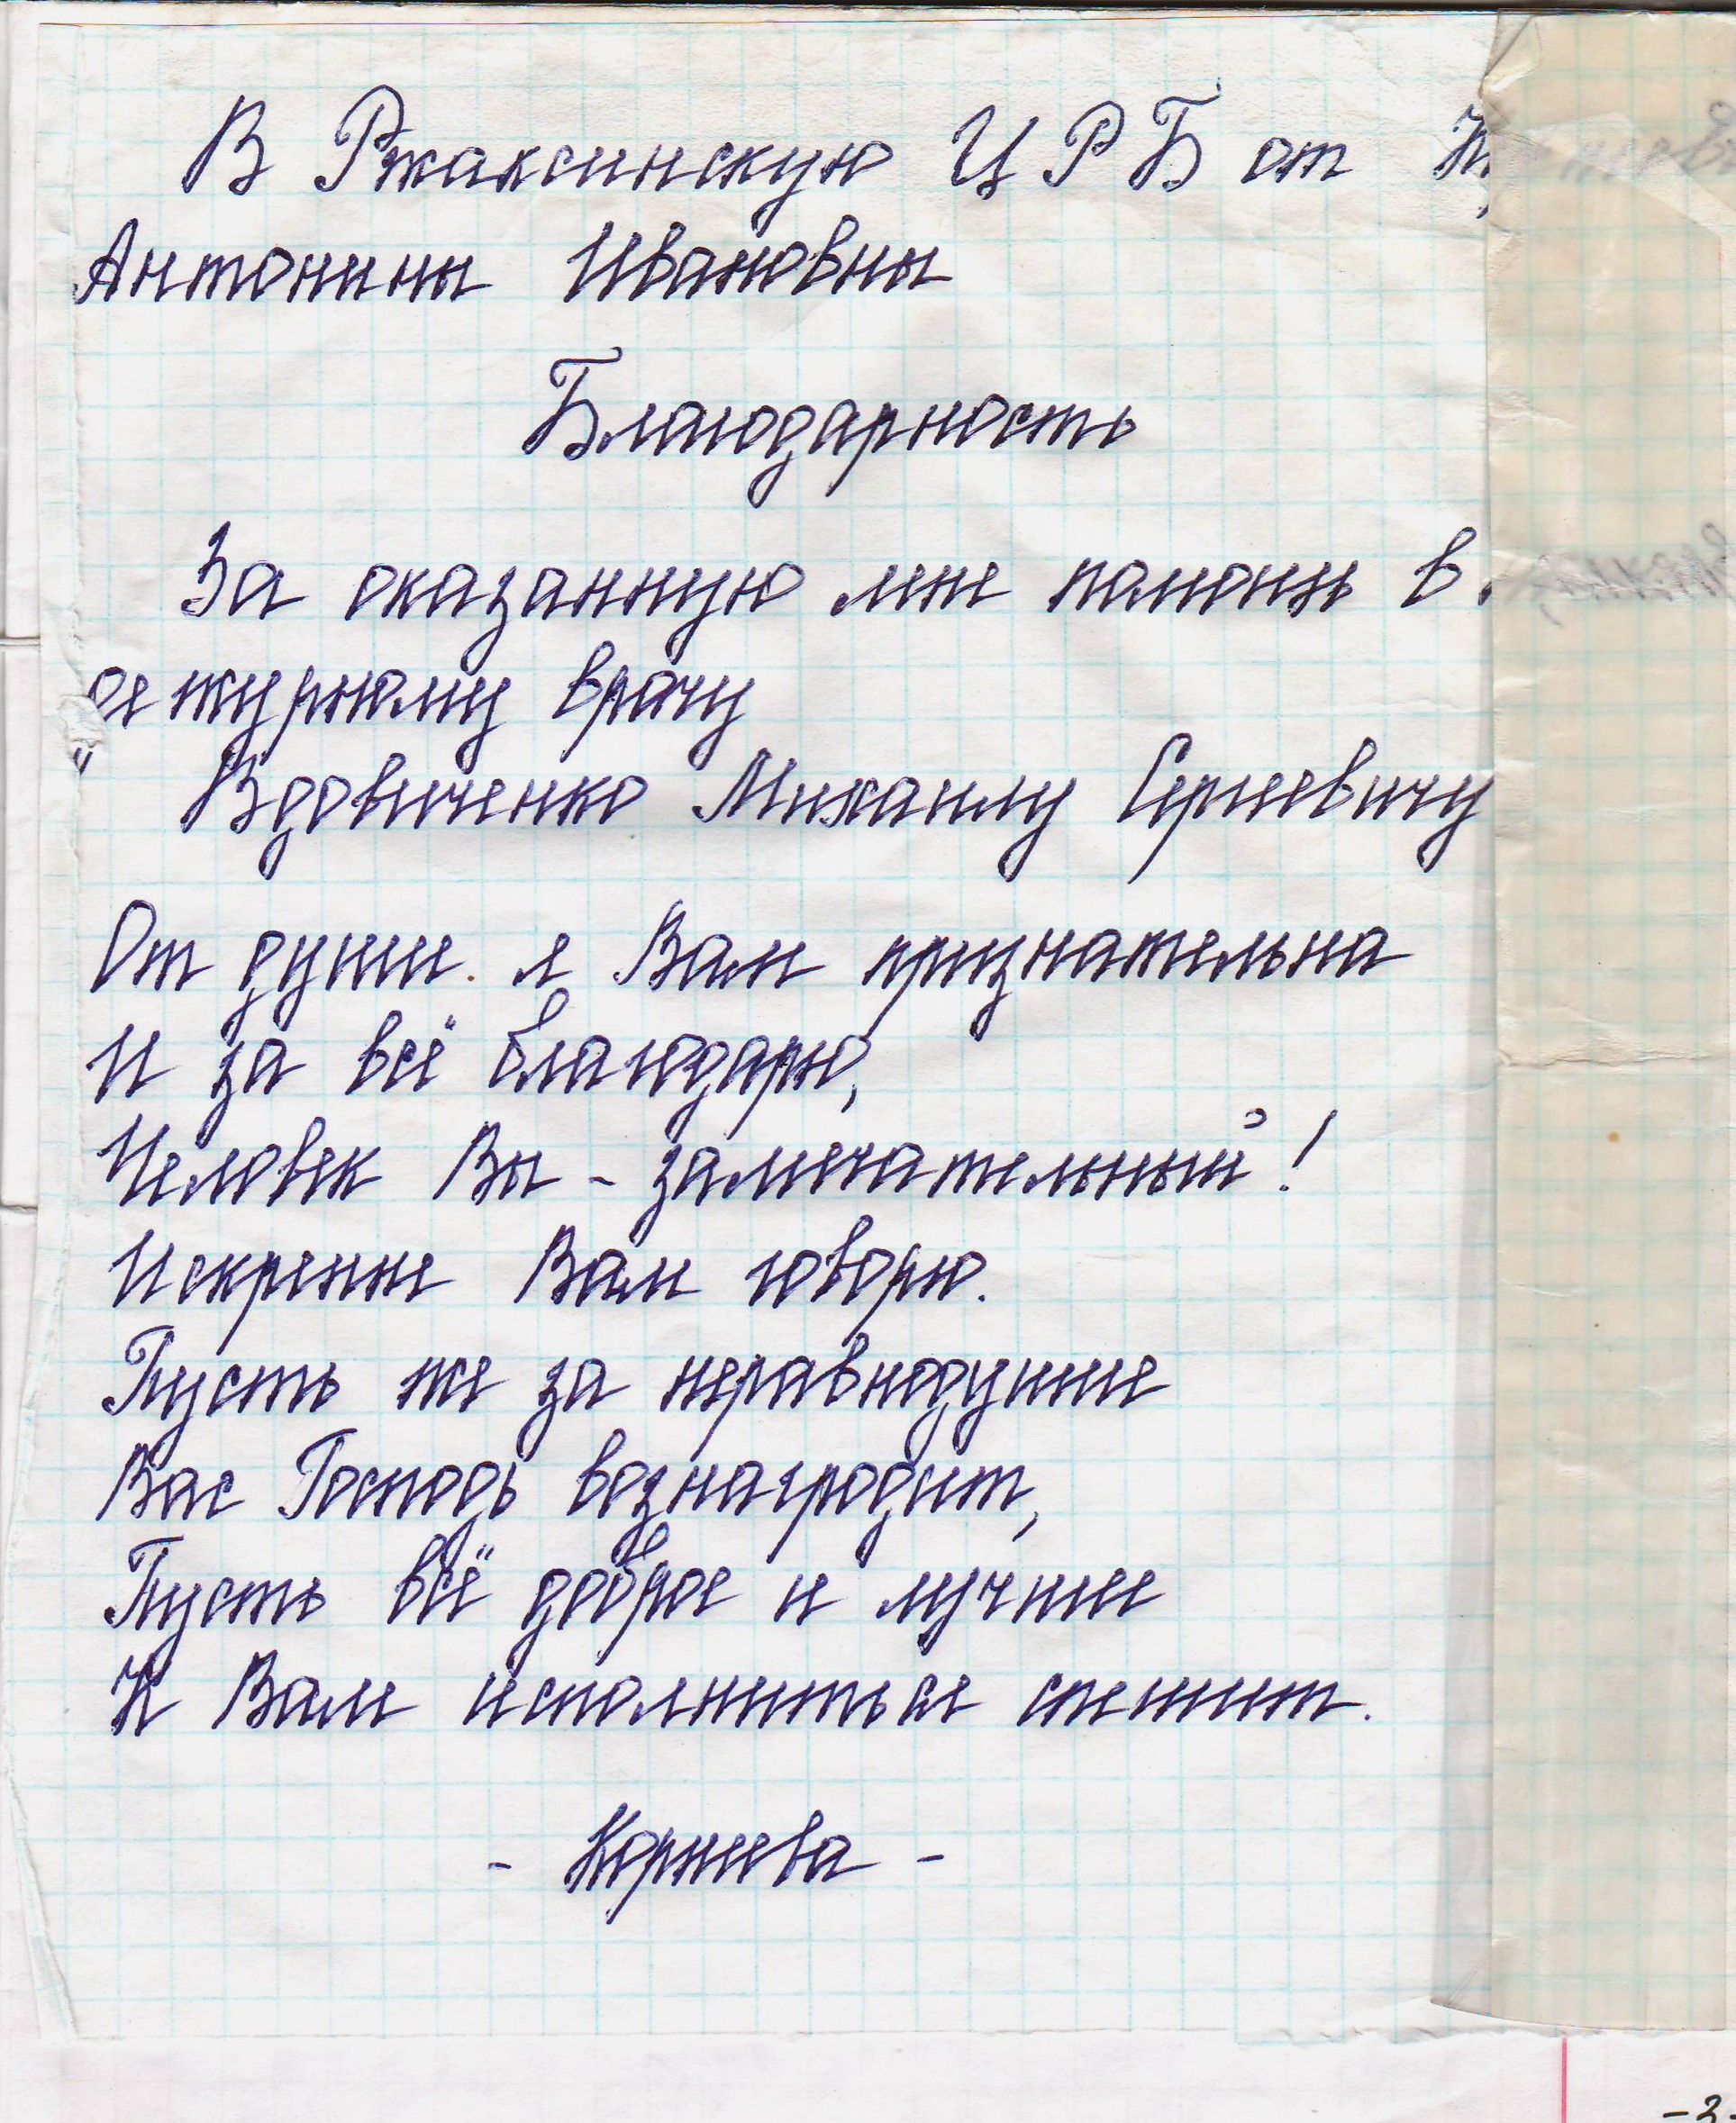 В Ржаксинскую ЦРБ от
Антонины Ивановны
Благодарность
За оказанную мне помощь в
дежурному врачу
Вдовиченко Михаилу Сергеевичу
От души я Вам признательна
И за всё благодарю,
Человек Вы - замечательный!
Искренне Вам говорю.
Пусть же за неравнодушие
Вас Господь вознаградит,
Пусть всё доброе и лучшее
К Вам исполниться спешит.
- Корнеева -
- 2 -